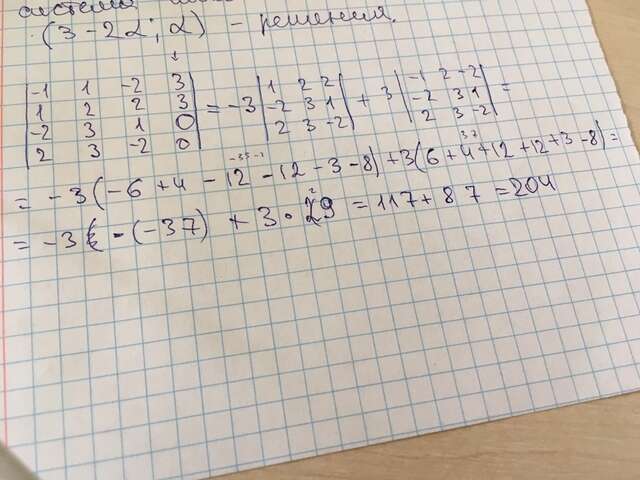 (3-2α; α) - решения.
↓
|-1 1 -2 3|
|1 2 2 3| = -3 |1 2 2; -2 3 1; 2 3 -2| + 3 |-1 2 -2; -2 3 1; 2 3 -2| =
|-2 3 1 0|
|2 3 -2 0|
= -3(-6+4-12-12-3-8)+3(6+4+12+12+3-8)=
= -3 · (-37) + 3 · 29 = 117+87 = 204